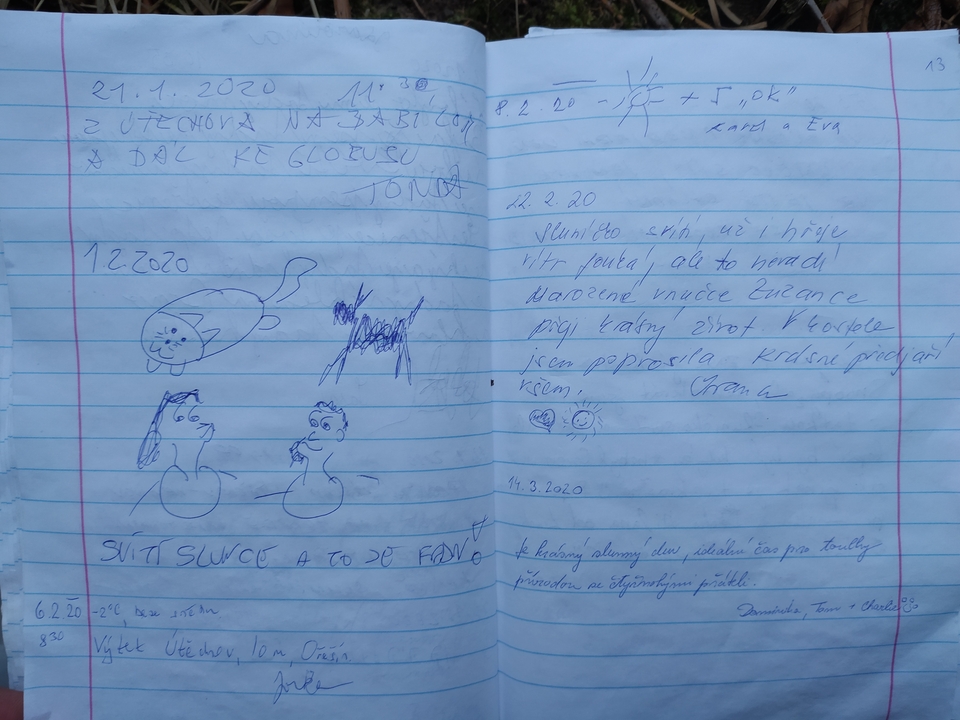 21.1.2020 11:30,
Z ÚTĚCHOVA NA BABÍ LOM
A DÁL KE GLOBUSU
TONDA
1.2.2020
SVÍTÍ SLUNCE A TO JE
6.2.20 -2°C, bez sněhu
8 30 Výtek Útěchov, lom, Ořešín
13
8.2.20 - + 5 "OK"
Karel a Eva
22.2.20
Sluníčko svítí, už i hřeje
vítr fouká, ale to nevadí
Narozené vnučce Zuzance
přeji krásný život. V kostele
jsem poprosila krásné předjaří
všem.
14.3.2020
Je krásný slunný den, ideální čas pro toulky
přírodou se čtyřnohými přáteli.
Dominika, Tom + Charlie